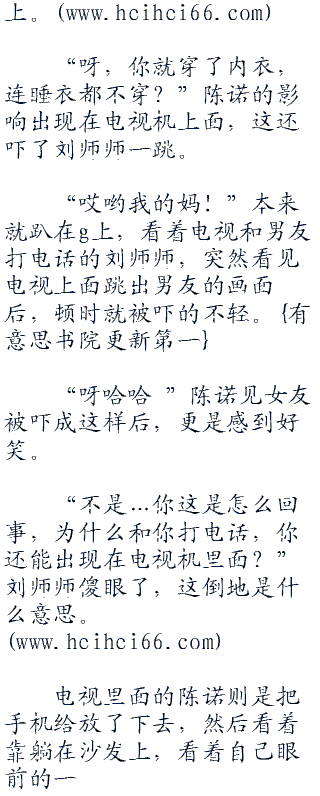 上。(www.hcihci66.com)
“呀，你就穿了内衣，
连睡衣都不穿？”陈诺的影
响出现在电视机上面，这还
吓了刘师师一跳。
“哎哟我的妈！”本来
就趴在g上，看着电视和男友
打电话的刘师师，突然看见
电视上面跳出男友的画面
后，顿时就被吓的不轻。{有
意思书院更新第一}
“呀哈哈 ”陈诺见女友
被吓成这样后，更是感到好
笑。
“不是…你这是怎么回
事，为什么和你打电话，你
还能出现在电视机里面？”
刘师师傻眼了，这倒地是什
么意思。
(www.hcihci66.com)
电视里面的陈诺则是把
手机给放了下去，然后看着
靠躺在沙发上，看着自己眼
前的一